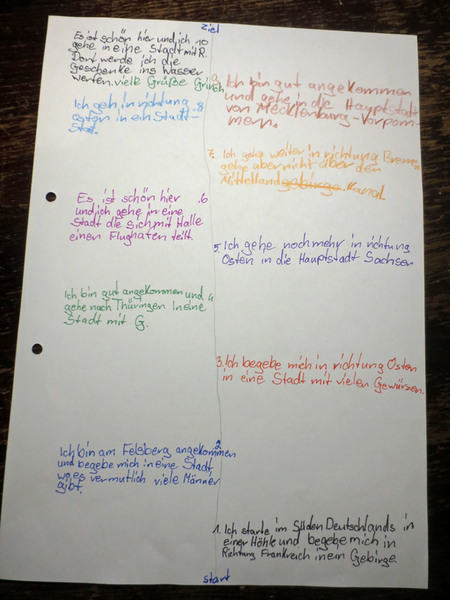 Ziel
Es ist schön hier und ich 10
gehe in eine Stadt mit R.
Dort werde ich die
Geschenke ins Wasser
werfen. viele Grüße Grinch
9 Ich bin gut angekommen
und gehe in die Hauptstadt
von Mecklenburg-Vorpom-
mern.
Ich geh in richtung .8
osten in ein Stadt-
Staat.
7. Ich gehe weiter in richtung Bremen
gehe über nicht über den
Mittellandgebirge Kanal.
Es ist schön hier .6
und ich gehe in eine
Stadt die sich mit Halle
einen Flughafen teilt.
5. Ich gehe noch mehr in richtung
Osten in die Hauptstadt Sachsen
Ich bin gut angekommen und 4
gehe nach Thüringen in eine
Stadt mit G.
3. Ich begebe mich in richtung Osten
in eine Stadt mit vielen Gewürzen.
Ich bin am Felsberg angekommen 2
und begebe mich in eine Stadt
wo es vermutlich viele Männer
gibt.
1. Ich starte im Süden Deutschlands in
einer Höhle und begebe mich in
Richtung Frankreich in ein Gebirge.
start